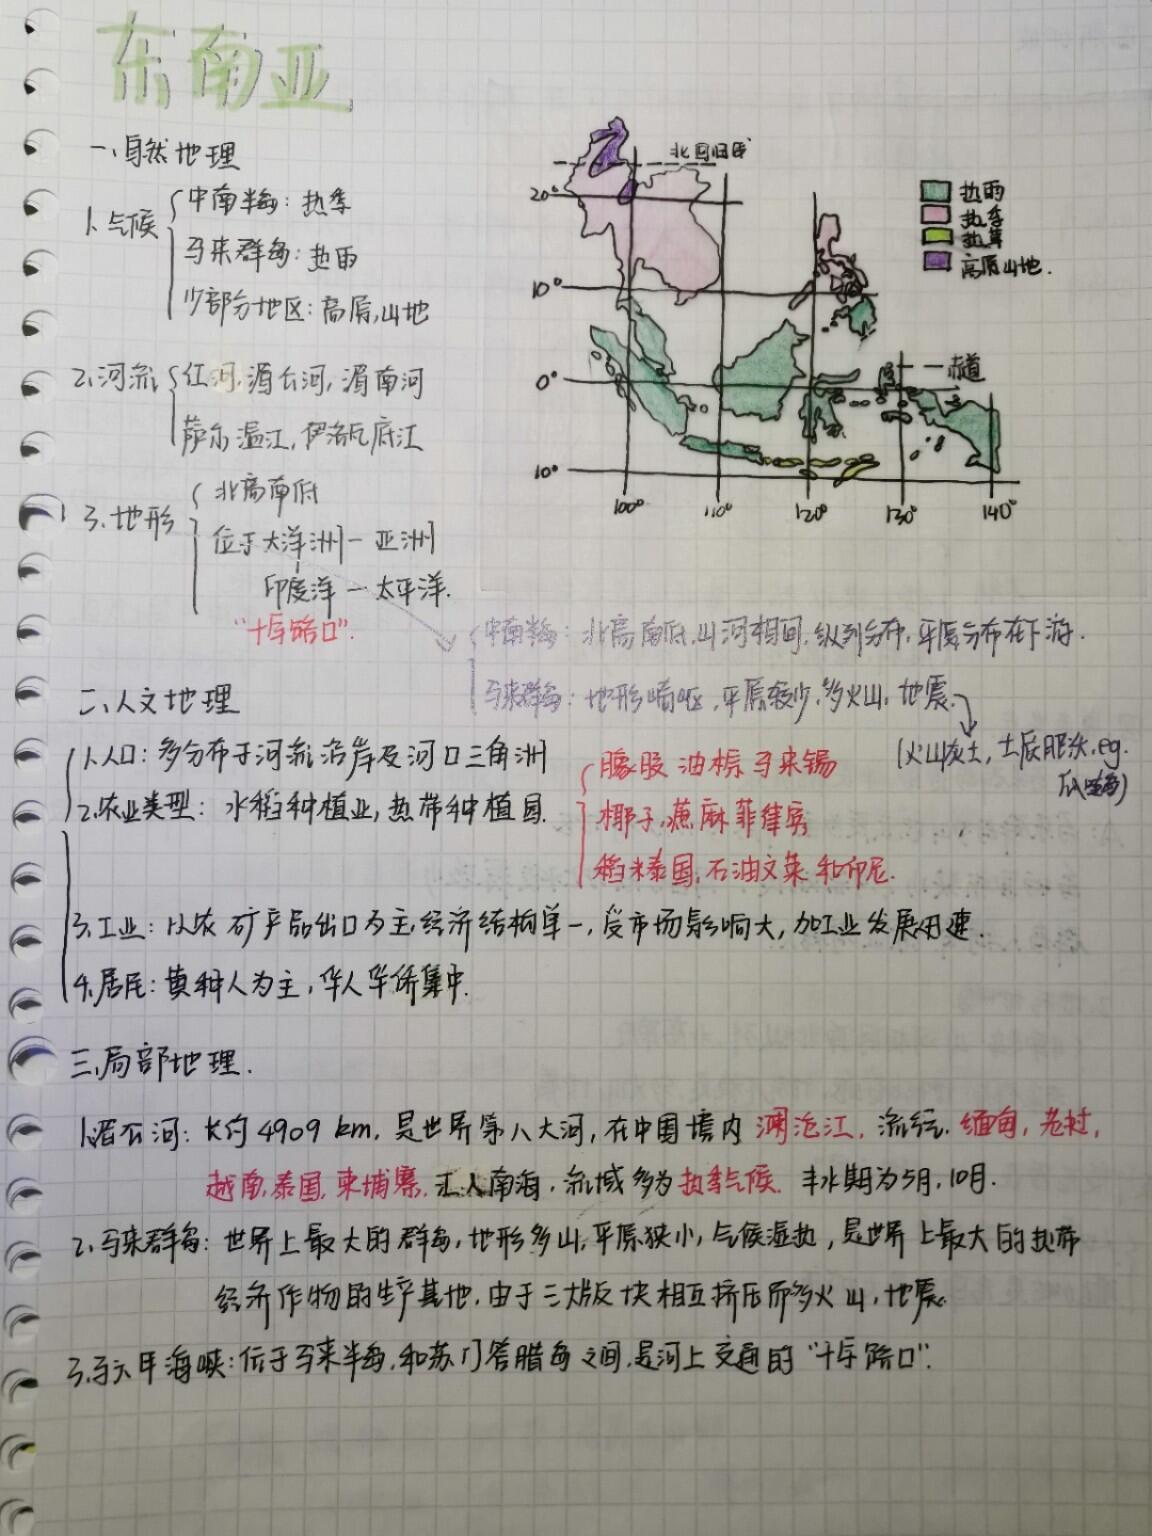 东南亚
一、自然地理
1.气候
中南半岛：热季
马来群岛：热雨
少部分地区：高原，山地
2.河流
红河，湄公河，湄南河
萨尔温江，伊洛瓦底江
3.地形
北高南低
位于大洋洲—亚洲
印度洋—太平洋.
"十字路口".
中南半岛：北高南低，山河相间，纵列分布，平原分布在下游.
马来群岛：地形崎岖，平原较少，多火山，地震.
(火山灰土，土质肥沃.eg.
爪哇岛)
北回归线
20°
10°
0°
10°
赤道
100°
110°
120°
130°
140°
热雨
热季
热草
高原山地.
二、人文地理
1.人口：多分布于河流沿岸及河口三角洲
2.农业类型：水稻种植业，热带种植园.
橡胶 油棕 马来锡
椰子，蕉麻菲律宾
稻米泰国，石油文莱和印尼.
3.工业：以农矿产品出口为主，经济结构单一，受市场影响大，加工业发展迅速.
4.居民：黄种人为主，华人华侨集中.
三、局部地理.
1.湄公河：长约4909km，是世界第八大河，在中国境内澜沧江，流经 缅甸，老挝，
越南，泰国，柬埔寨，汇入南海，流域多为热季气候. 丰水期为5月，10月.
2.马来群岛：世界上最大的群岛，地形多山，平原狭小，气候湿热，是世界上最大的热带
经济作物的生产基地，由于三大版块相互挤压而多火山，地震.
3.马六甲海峡：位于马来半岛，和苏门答腊岛之间，是河上交通的"十字路口".